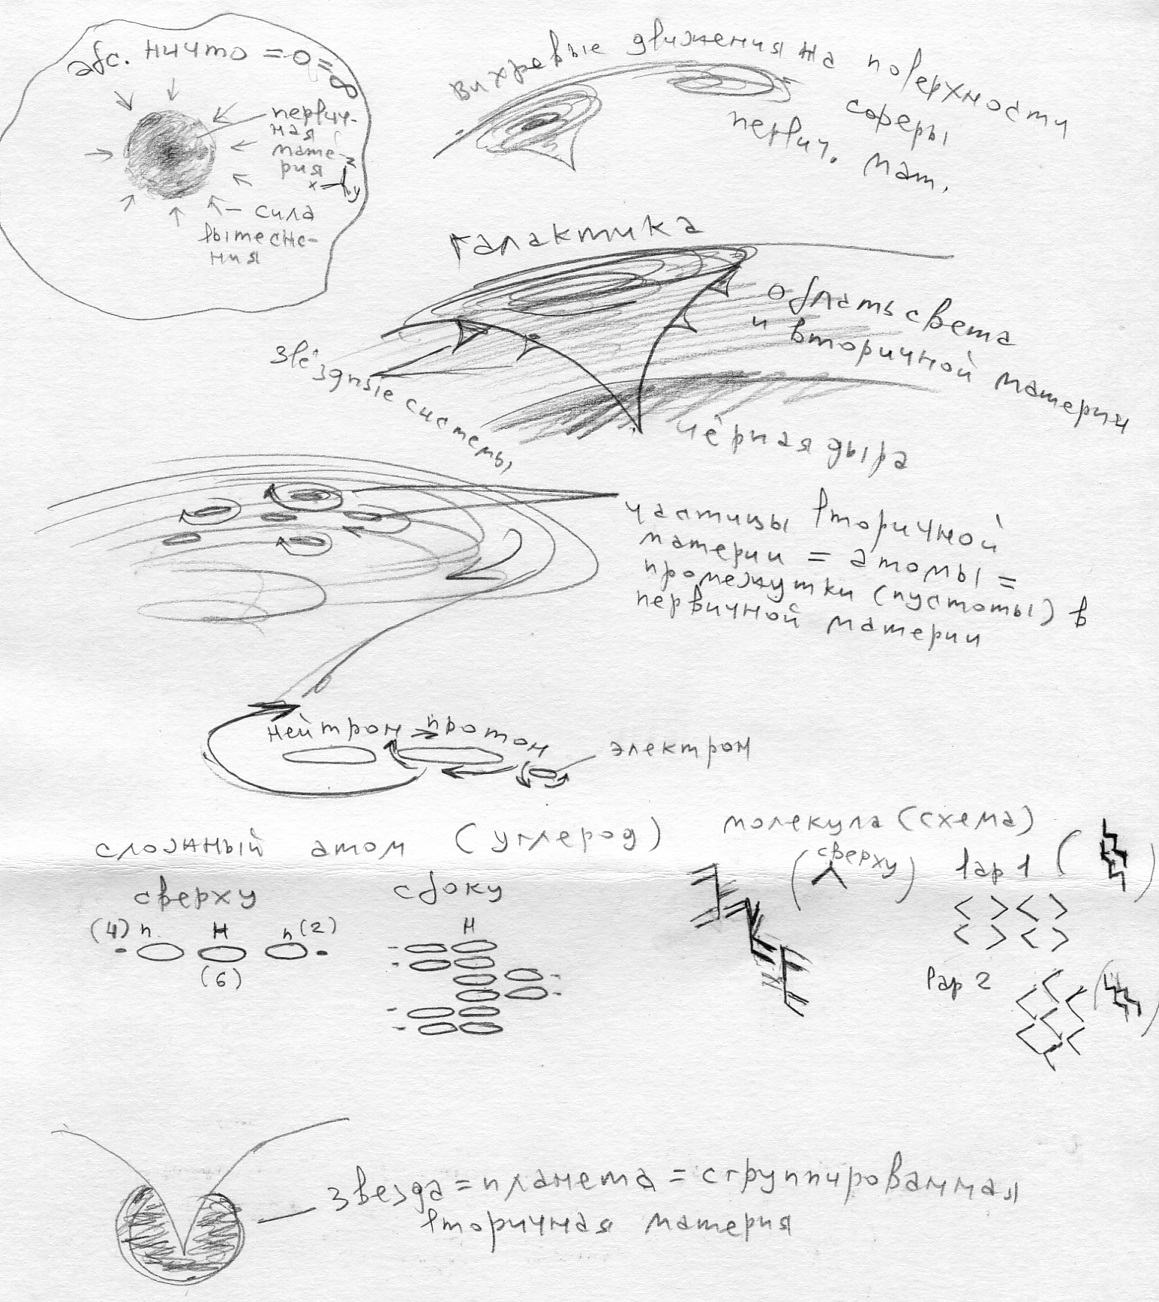 абс. ничто = 0 = ∞
первич-
ная
мате-
рия
z
x y
сила
вытесне-
ния
вихревые движения на поверхности
сферы
первич. мат.
галактика
область света
и вторичной материи
звёздные системы
чёрная дыра
частицы вторичной
материи = атомы =
промежутки (пустоты) в
первичной материи
нейтрон протон
электрон
сложный атом (углерод)
сверху
(4) п Н п (2)
(6)
сбоку
Н
молекула (схема)
(сверху)
вар 1
вар 2
звезда = планета = сгруппированная
вторичная материя